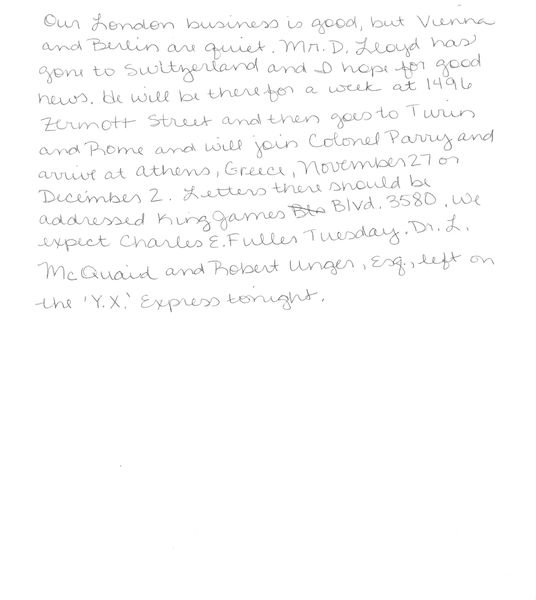 Our London business is good, but Vienna
and Berlin are quiet. Mr. D. Lloyd has
gone to Switzerland and I hope for good
news. He will be there for a week at 1496
Zermott Street and then goes to Turin
and Rome and will join Colonel Parry and
arrive at Athens, Greece, November 27 or
December 2. Letters there should be
addressed King James Blvd. 3580. We
expect Charles E. Fuller Tuesday. Dr. L.
McQuaid and Robert Unger, Esq., left on
the 'Y.X.' Express tonight.